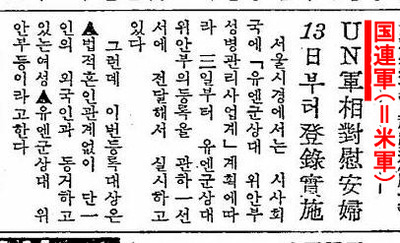 国連軍(=米軍)-
UN軍相對慰安婦
13日부터登錄實施
서울시경에서는 시사회
국에「유엔군상대 위안부
성병관리사업계」계획에따
라 三일부터 유엔군상대
위안부의등록을 관하一선
서에 전달해서 실시하고
있다
그런데 이번등록대상은
▲법적혼인관계없이 단一
인의 외국인과 동거하고
있는여성▲유엔군상대 위
안부등이라고한다